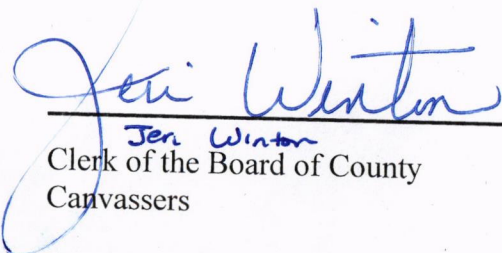 Jeri Winton
Jeri Winton
Clerk of the Board of County
Canvassers